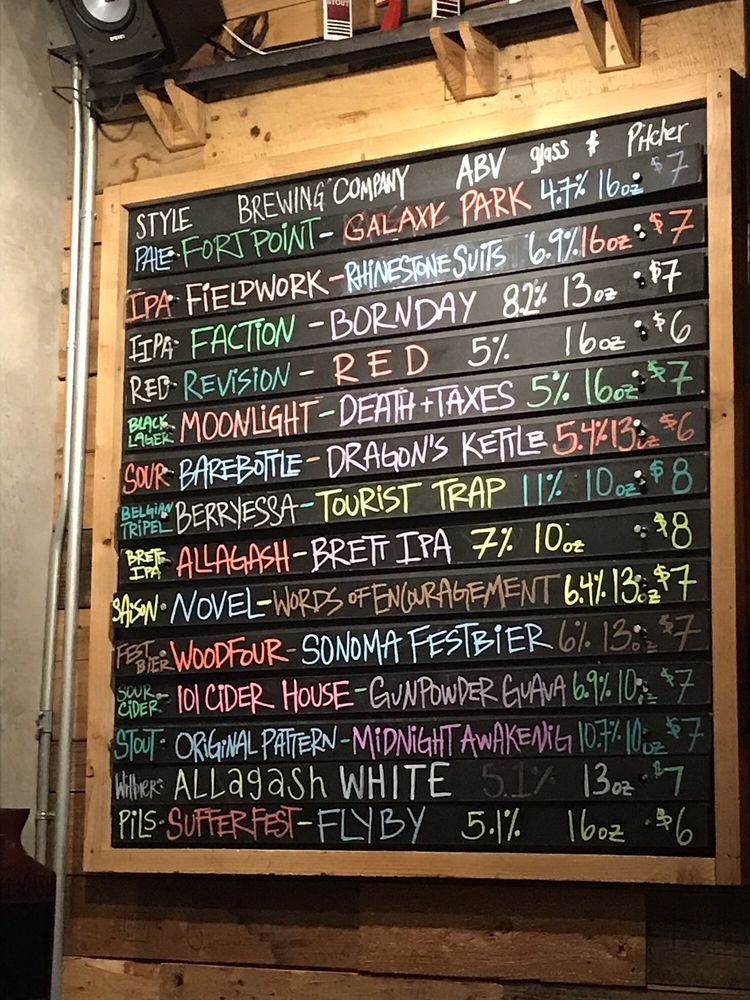 STOUT
STYLE BREWING COMPANY ABV glass $ Pitcher
PALE FORT POINT - GALAXY PARK 4.7% 16oz $7
IPA FIELDWORK - RHINESTONE SUITS 6.9% 16oz $7
IIPA FACTION - BORNDAY 8.2% 13oz $7
RED REVISION - RED 5% 16oz $6
BLACK LAGER MOONLIGHT - DEATH + TAXES 5% 16oz $7
SOUR BAREBOTTLE - DRAGON'S KETTLE 5.4% 13oz $6
BELGIAN TRIPEL BERRYESSA - TOURIST TRAP 11% 10oz $8
BRETT IPA ALLAGASH - BRETT IPA 7% 10oz $8
SAISON NOVEL - WORDS OF ENCOURAGEMENT 6.4% 13oz $7
FEST BIER WOODFOUR - SONOMA FESTBIER 6% 13oz $7
SOUR CIDER 101 CIDER HOUSE - GUNPOWDER GUAVA 6.9% 10oz $7
STOUT ORIGINAL PATTERN - MIDNIGHT AWAKENIG 10.7% 10oz $7
ALLAGASH WHITE 5.1% 13oz $7
PILS SUFFERFEST - FLYBY 5.1% 16oz $6